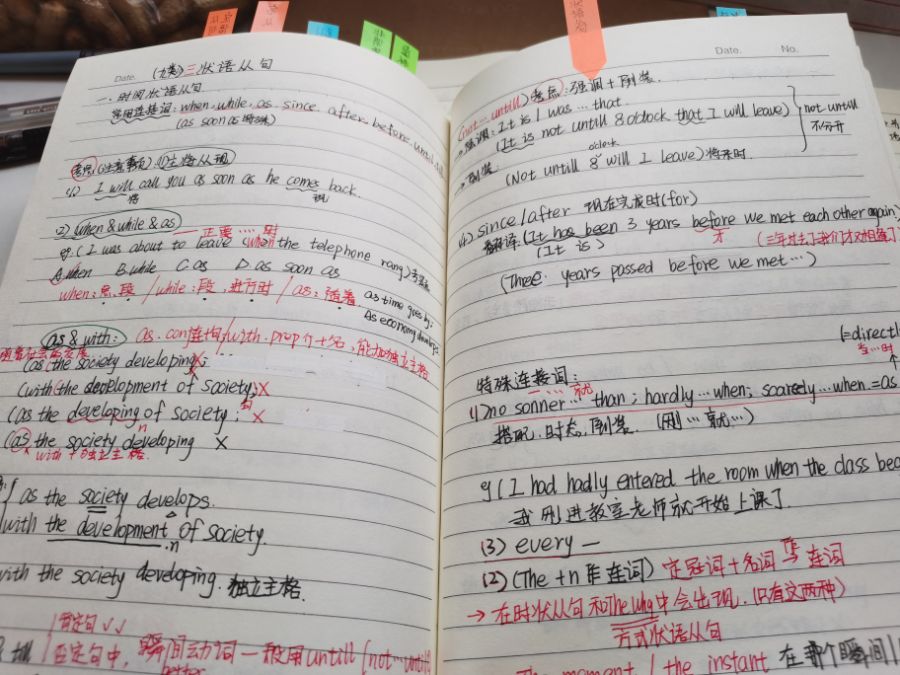 Date.
(九类) 三状语从句
一. 时间状语从句
常用连接词: when. while. as. since. after. before. until.
(as soon as 等)
考点 (注意事项) (1)主将从现
(1). I will call you as soon as he comes back.
将 现
2) when & while & as
正要…时
eg. (I was about to leave (when) the telephone rang)
A. when B. while C as D as soon as
when: 点, 段 / while: 段, 进行时 / as: 随着. as time goes by;
As economy develops
as & with: as. conj 连词 / with. prop 介+名, 能加独立主格
随着社会的发展
(as the society developing; X
(with the development of society; X
(as the developing of society; X
n
(as the society developing X
X with + 独立主格.
as the society develops.
with the development of society.
.n
with the society developing. 独立主格.
肯定句 √√
否定句中, 瞬间动词一般用untill (not…untill
Date. No.
(not…untill) 考点: 强调+倒装.
→强调: It is / was … that.
(It is not untill 8 oclock that I will leave)
not untill
不分开
→倒装.
oclock
(Not untill 8 will I leave) 将来时.
(4) since / after 现在完成时(for)
翻译: (It has been 3 years before we met each other again)
(It is) 才 (三年过去了我们才又相遇了)
(Three years passed before we met…)
(=directl
当…时
特殊连接词:
一…就
(1) no sonner … than; hardly … when; scarcely … when = as
搭配. 时态. 倒装. (刚…就…)
g (I had hadly entered the room when the class bea
我刚进教室老师就开始上课了
(3) every —
(2) (The +n 作连词) 定冠词+名词 作 连词
→ 在时状从句和the way中会出现. (只有这两种)
方式状语从句
The moment / the instant 在那个瞬间